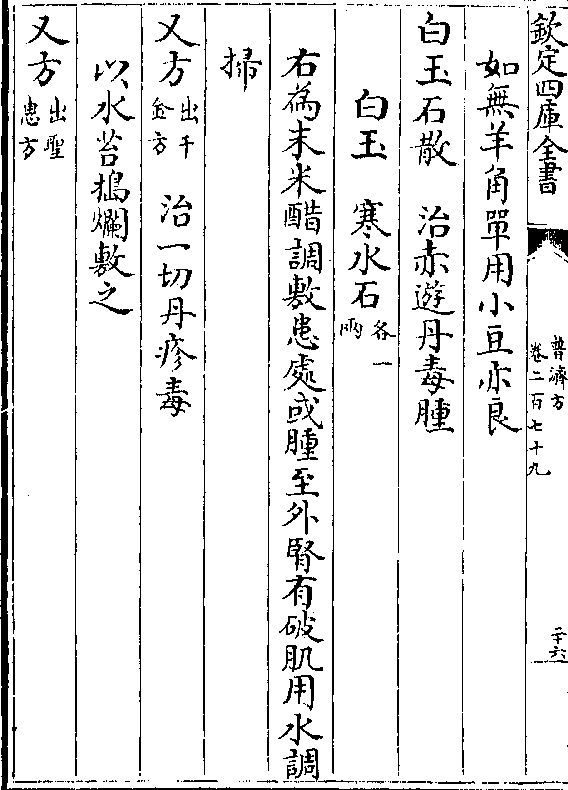 欽定四庫全書
普濟方
卷二百七十九
二十六
如無羊角單用小豆亦良
白玉石散　治赤遊丹毒腫
白玉　寒水石各一兩
右為末米醋調敷患處或腫至外腎有破肌用水調
掃
又方出千金方　治一切丹疹毒
以水苔搗爛敷之
又方出聖惠方